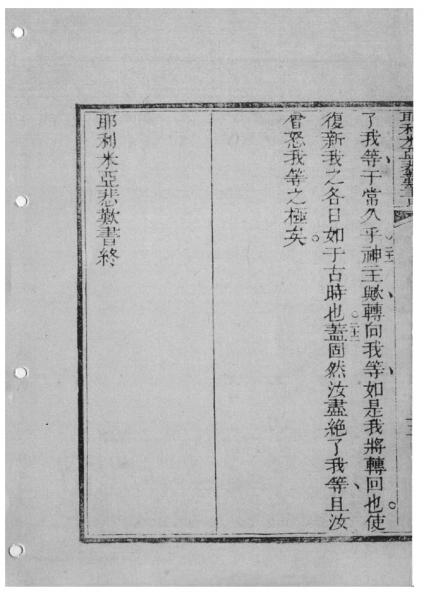 耶利米亞悲歎書
了我等于常久乎○二十一神主歟轉向我等如是我將轉回也使
復新我之各日如于古時也○二十二蓋固然汝盡絕了我等且汝
曾怒我等之極矣
耶利米亞悲歎書終